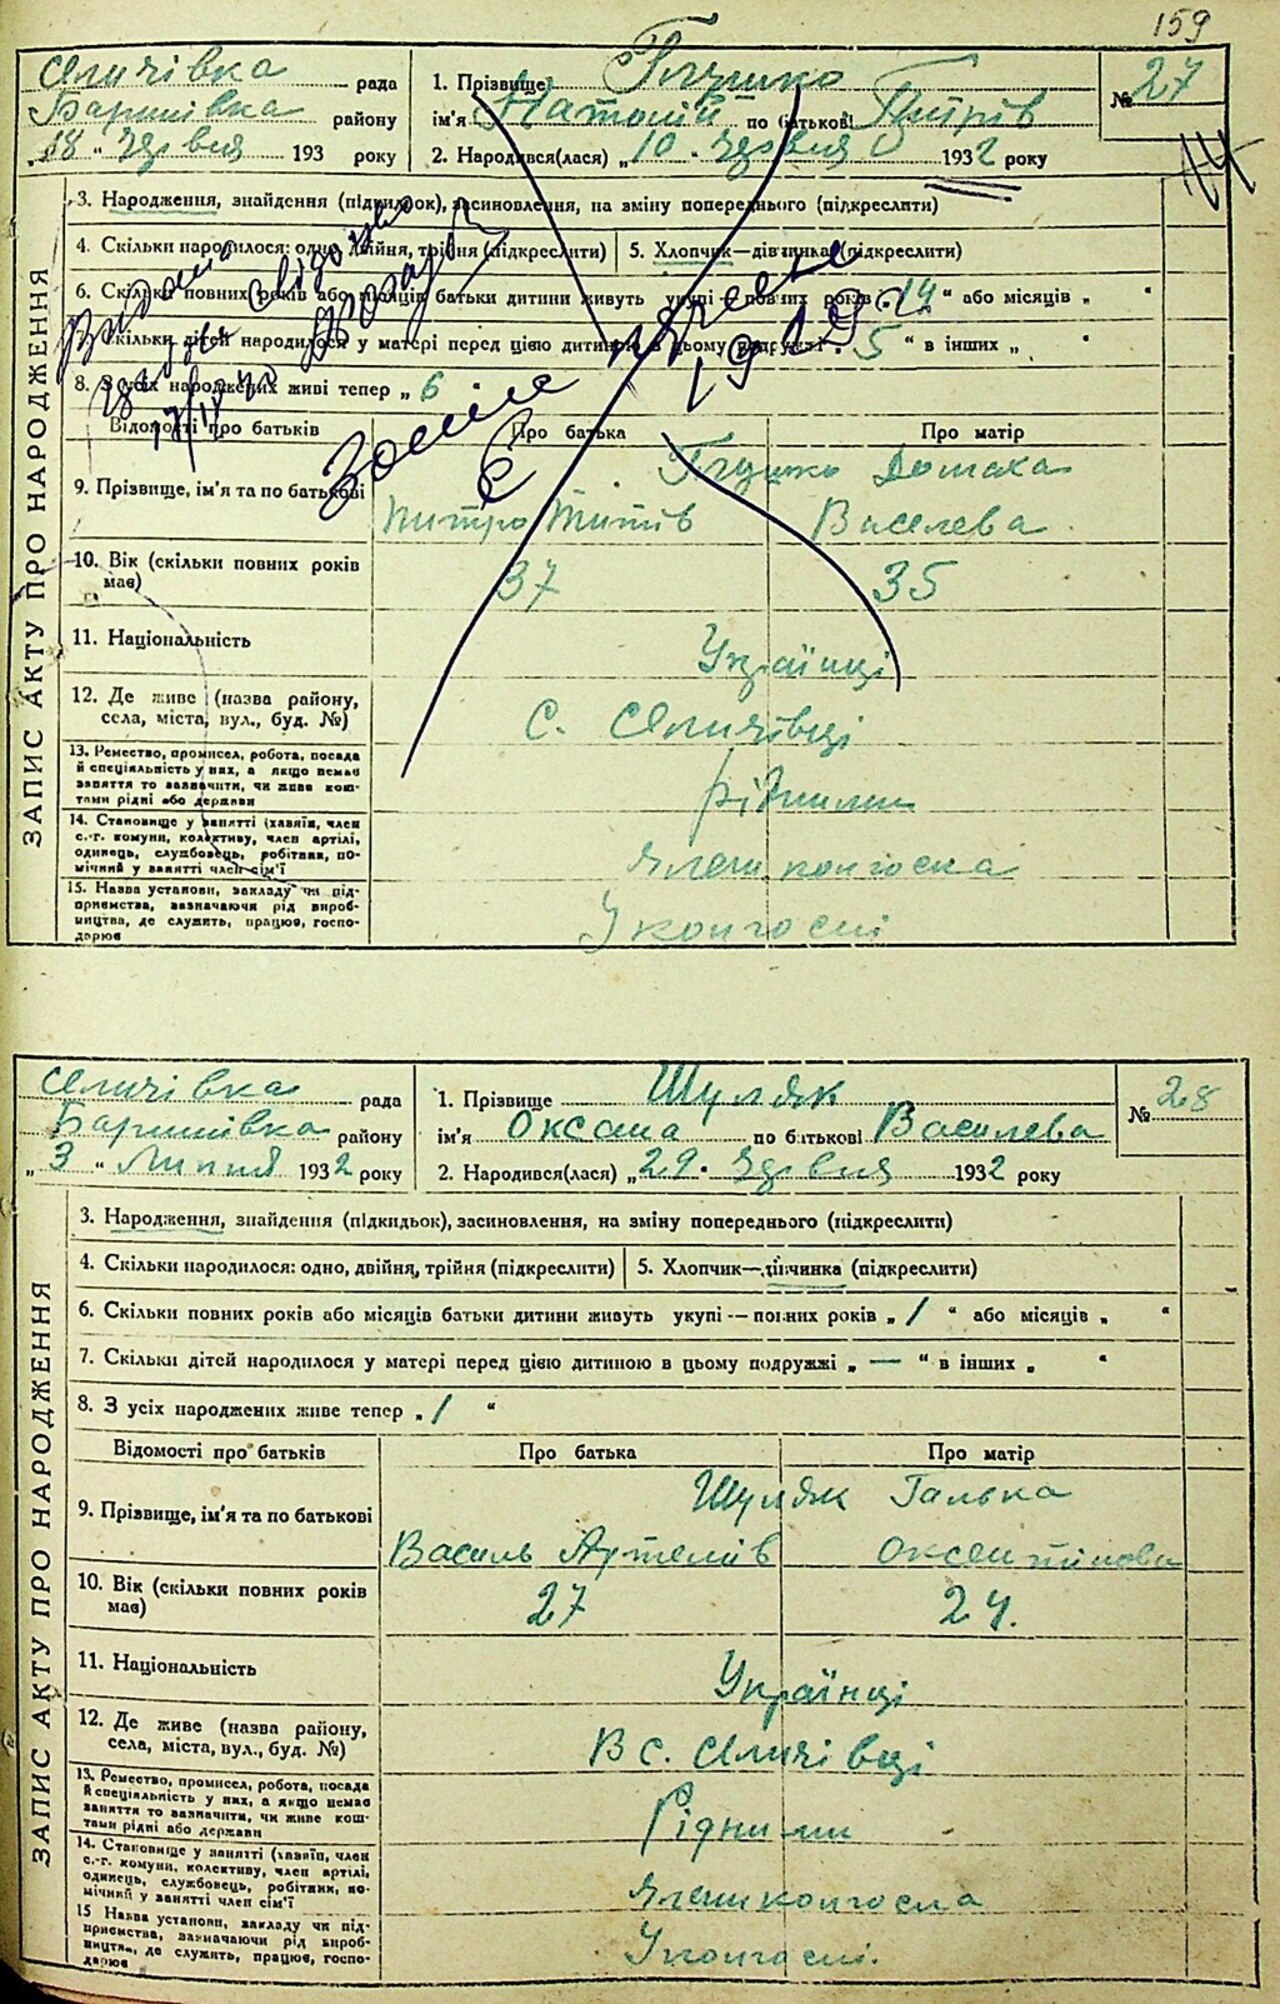 159
Селичівка рада
Баришівка району
„18“ Червня 193 року
1. Прізвище Глушко
ім'я Натолій по батькові Питрів
2. Народився(лася) „10“ Червня 1932 року
№ 27
ЗАПИС АКТУ ПРО НАРОДЖЕННЯ
3. Народження, знайдення (підкидьок), засиновлення, на зміну попереднього (підкреслити)
4. Скільки народилося: одно, двійня, трійня (підкреслити)
5. Хлопчик—дівчинка (підкреслити)
6. Скільки повних років або місяців батьки дитини живуть укупі — повних років „14“ або місяців „ “
7. Скільки дітей народилося у матері перед цією дитиною в цьому подружжі „5“ в інших „ “
8. З усіх народжених живі тепер „6
Відомості про батьків Про батька Про матір
9. Прізвище, ім'я та по батькові
Глушко Домаха
Питро Титів Василева
10. Вік (скільки повних років має) 37 35
11. Національність Українці
12. Де живе (назва району, села, міста, вул., буд. №) С. Селичівці
13. Ремество, промисел, робота, посада
й спеціяльність у них, а якщо немає
заняття то зазначити, чи живе кош-
тами рідні або держави
рідними
14. Становище у занятті (хазяїн, член
с.-г. комуни, колективу, член артілі,
одинець, службовець, робітник, по-
мічний у занятті член сім'ї
Члени колгоспа
15. Назва установи, закладу чи під-
приємства, зазначаючи рід вироб-
ництва, де служить, працює, госпо-
дарює
У колгоспі
Селичівка рада
Баришівка району
„3“ Липня 1932 року
1. Прізвище Шуляк
ім'я Оксана по батькові Василева
2. Народився(лася) „29“ Червня 1932 року
№ 28
ЗАПИС АКТУ ПРО НАРОДЖЕННЯ
3. Народження, знайдення (підкидьок), засиновлення, на зміну попереднього (підкреслити)
4. Скільки народилося: одно, двійня, трійня (підкреслити)
5. Хлопчик—дівчинка (підкреслити)
6. Скільки повних років або місяців батьки дитини живуть укупі — повних років „1“ або місяців „ “
7. Скільки дітей народилося у матері перед цією дитиною в цьому подружжі „—“ в інших „ “
8. З усіх народжених живе тепер „1“
Відомості про батьків Про батька Про матір
9. Прізвище, ім'я та по батькові
Шуляк Галька
Василь Артемів Оксентіева
10. Вік (скільки повних років має) 27 24.
11. Національність Українці
12. Де живе (назва району, села, міста, вул., буд. №) В с. Селичівці
13. Ремество, промисел, робота, посада
й спеціяльність у них, а якщо немає
заняття то зазначити, чи живе кош-
тами рідні або держави
Рідними
14. Становище у занятті (хазяїн, член
с.-г. комуни, колективу, член артілі,
одинець, службовець, робітник, по-
мічний у занятті член сім'ї
Члени колгоспа
15 Назва установи, закладу чи під-
приємства, зазначаючи рід вироб-
ництва, де служить, працює, госпо-
дарює
У колгоспі.